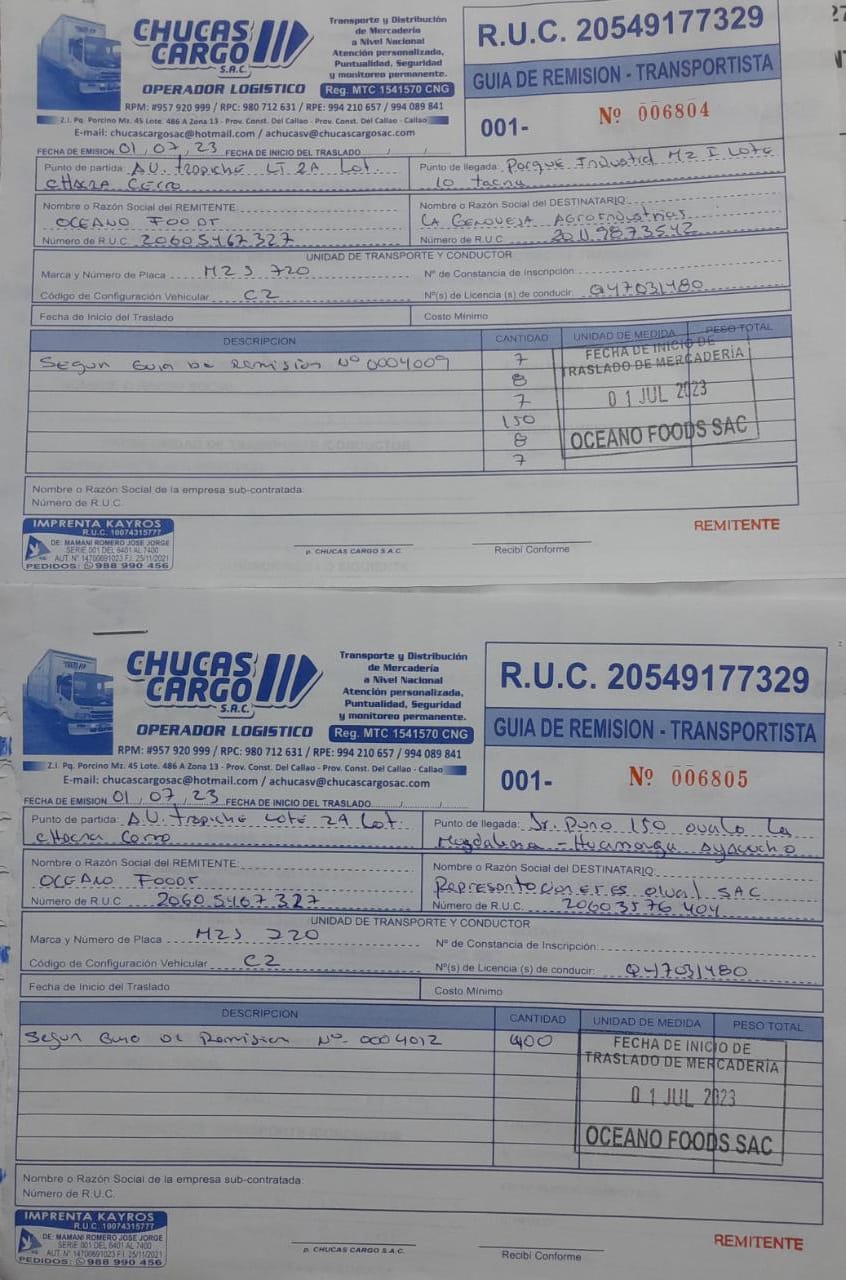 CHUCAS CARGO S.A.C.
OPERADOR LOGISTICO
Transporte y Distribución
de Mercadería
a Nivel Nacional
Atención personalizada,
Puntualidad, Seguridad
y monitoreo permanente.
Reg. MTC 1541570 CNG
RPM: #957 920 999 / RPC: 980 712 631 / RPE: 994 210 657 / 994 089 841
Z.I. Pq. Porcino Mz. 45 Lote. 486 A Zona 13 - Prov. Const. Del Callao - Prov. Const. Del Callao - Callao
E-mail: chucascargosac@hotmail.com / achucasv@chucascargo.com
R.U.C. 20549177329
GUIA DE REMISION - TRANSPORTISTA
001- Nº 006804
FECHA DE EMISION 01, 07, 23 FECHA DE INICIO DEL TRASLADO
Punto de partida: A.V. tropiche LT 2A Lot.
CHACRA Cerro
Punto de llegada: Parque Industrial Mz I Lote
10 tacna
Nombre o Razón Social del REMITENTE
OCEANO FOODS
Número de R.U.C. 20605467327
Nombre o Razón Social del DESTINATARIO
LA Genoveja Agroindustrias
Número de R.U.C 20119873542
UNIDAD DE TRANSPORTE Y CONDUCTOR
Marca y Número de Placa M2J 720
Nº de Constancia de Inscripción
Código de Configuración Vehicular C2
Nº(s) de Licencia (s) de conducir: Q47031480
Fecha de Inicio del Traslado
Costo Mínimo
DESCRIPCION CANTIDAD UNIDAD DE MEDIDA PESO TOTAL
Segun Guia De Remision Nº 0004009 7
8
7
150
8
7
FECHA DE INICIO DE
TRASLADO DE MERCADERÍA
01 JUL 2023
OCEANO FOODS SAC
Nombre o Razón Social de la empresa sub-contratada:
Número de R.U.C.
IMPRENTA KAYROS
R.U.C. 10074315777
DE: MAMANI ROMERO JOSE JORGE
SERIE 001 DEL 6401 AL 7400
AUT. Nº 14700691023 F.I. 25/11/2021
PEDIDOS: 988 990 456
p. CHUCAS CARGO S.A.C.
Recibí Conforme
REMITENTE
CHUCAS CARGO S.A.C.
OPERADOR LOGISTICO
Transporte y Distribución
de Mercadería
a Nivel Nacional
Atención personalizada,
Puntualidad, Seguridad
y monitoreo permanente.
Reg. MTC 1541570 CNG
RPM: #957 920 999 / RPC: 980 712 631 / RPE: 994 210 657 / 994 089 841
Z.I. Pq. Porcino Mz. 45 Lote. 486 A Zona 13 - Prov. Const. Del Callao - Prov. Const. Del Callao - Callao
E-mail: chucascargosac@hotmail.com / achucasv@chucascargo.com
R.U.C. 20549177329
GUIA DE REMISION - TRANSPORTISTA
001- Nº 006805
FECHA DE EMISION 01, 07, 23 FECHA DE INICIO DEL TRASLADO
Punto de partida: A.V. tropiche Lote 2A Lot.
CHacra Cerro
Punto de llegada: Jr. Puno 150 ovalo La
Magdalena - Huamanga Ayacucho
Nombre o Razón Social del REMITENTE:
OCEANO FOODS
Número de R.U.C 20605467327
Nombre o Razón Social del DESTINATARIO
SAC
Número de R.U.C. 20603576404
UNIDAD DE TRANSPORTE Y CONDUCTOR
Marca y Número de Placa M2J 720
Nº de Constancia de Inscripción:
Código de Configuración Vehicular C2
Nº(s) de Licencia (s) de conducir: Q47031480
Fecha de Inicio del Traslado
Costo Mínimo
DESCRIPCION CANTIDAD UNIDAD DE MEDIDA PESO TOTAL
Segun Guia De Remision Nº 0004012 400
FECHA DE INICIO DE
TRASLADO DE MERCADERÍA
01 JUL 2023
OCEANO FOODS SAC
Nombre o Razón Social de la empresa sub-contratada:
Número de R.U.C.
IMPRENTA KAYROS
R.U.C. 10074315777
DE: MAMANI ROMERO JOSE JORGE
SERIE 001 DEL 6401 AL 7400
AUT. Nº 14700691023 F.I. 25/11/2021
PEDIDOS: 988 990 456
p. CHUCAS CARGO S.A.C.
Recibí Conforme
REMITENTE